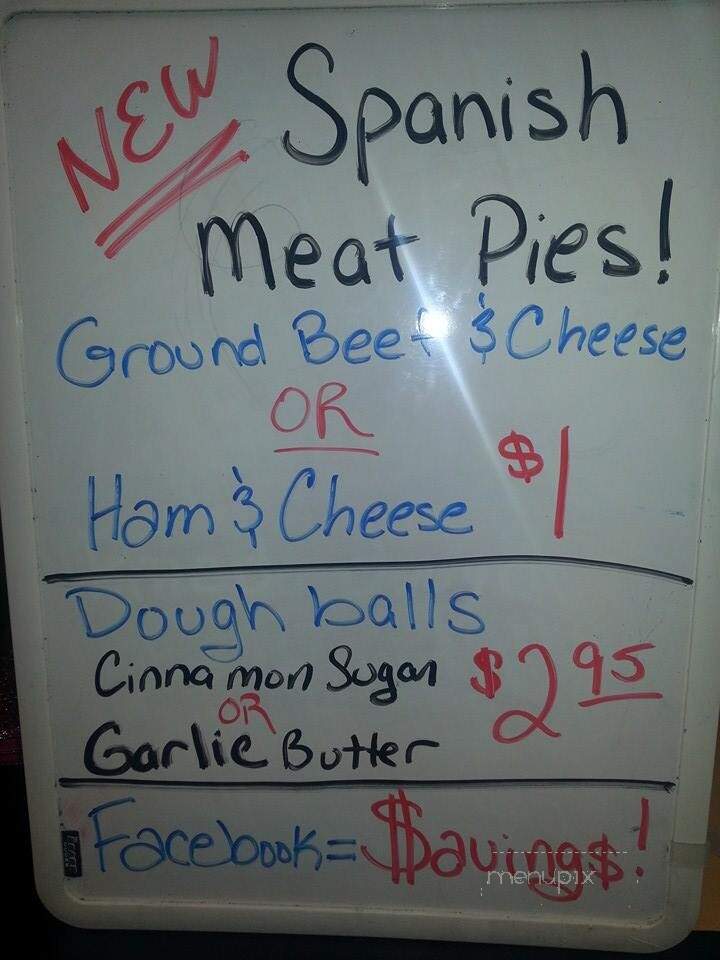 NEW Spanish
Meat Pies!
Ground Beef & Cheese
OR
Ham & Cheese $1
Dough balls
Cinnamon Sugar $2.95
OR
Garlic Butter
Facebook = $aving$!
menupix